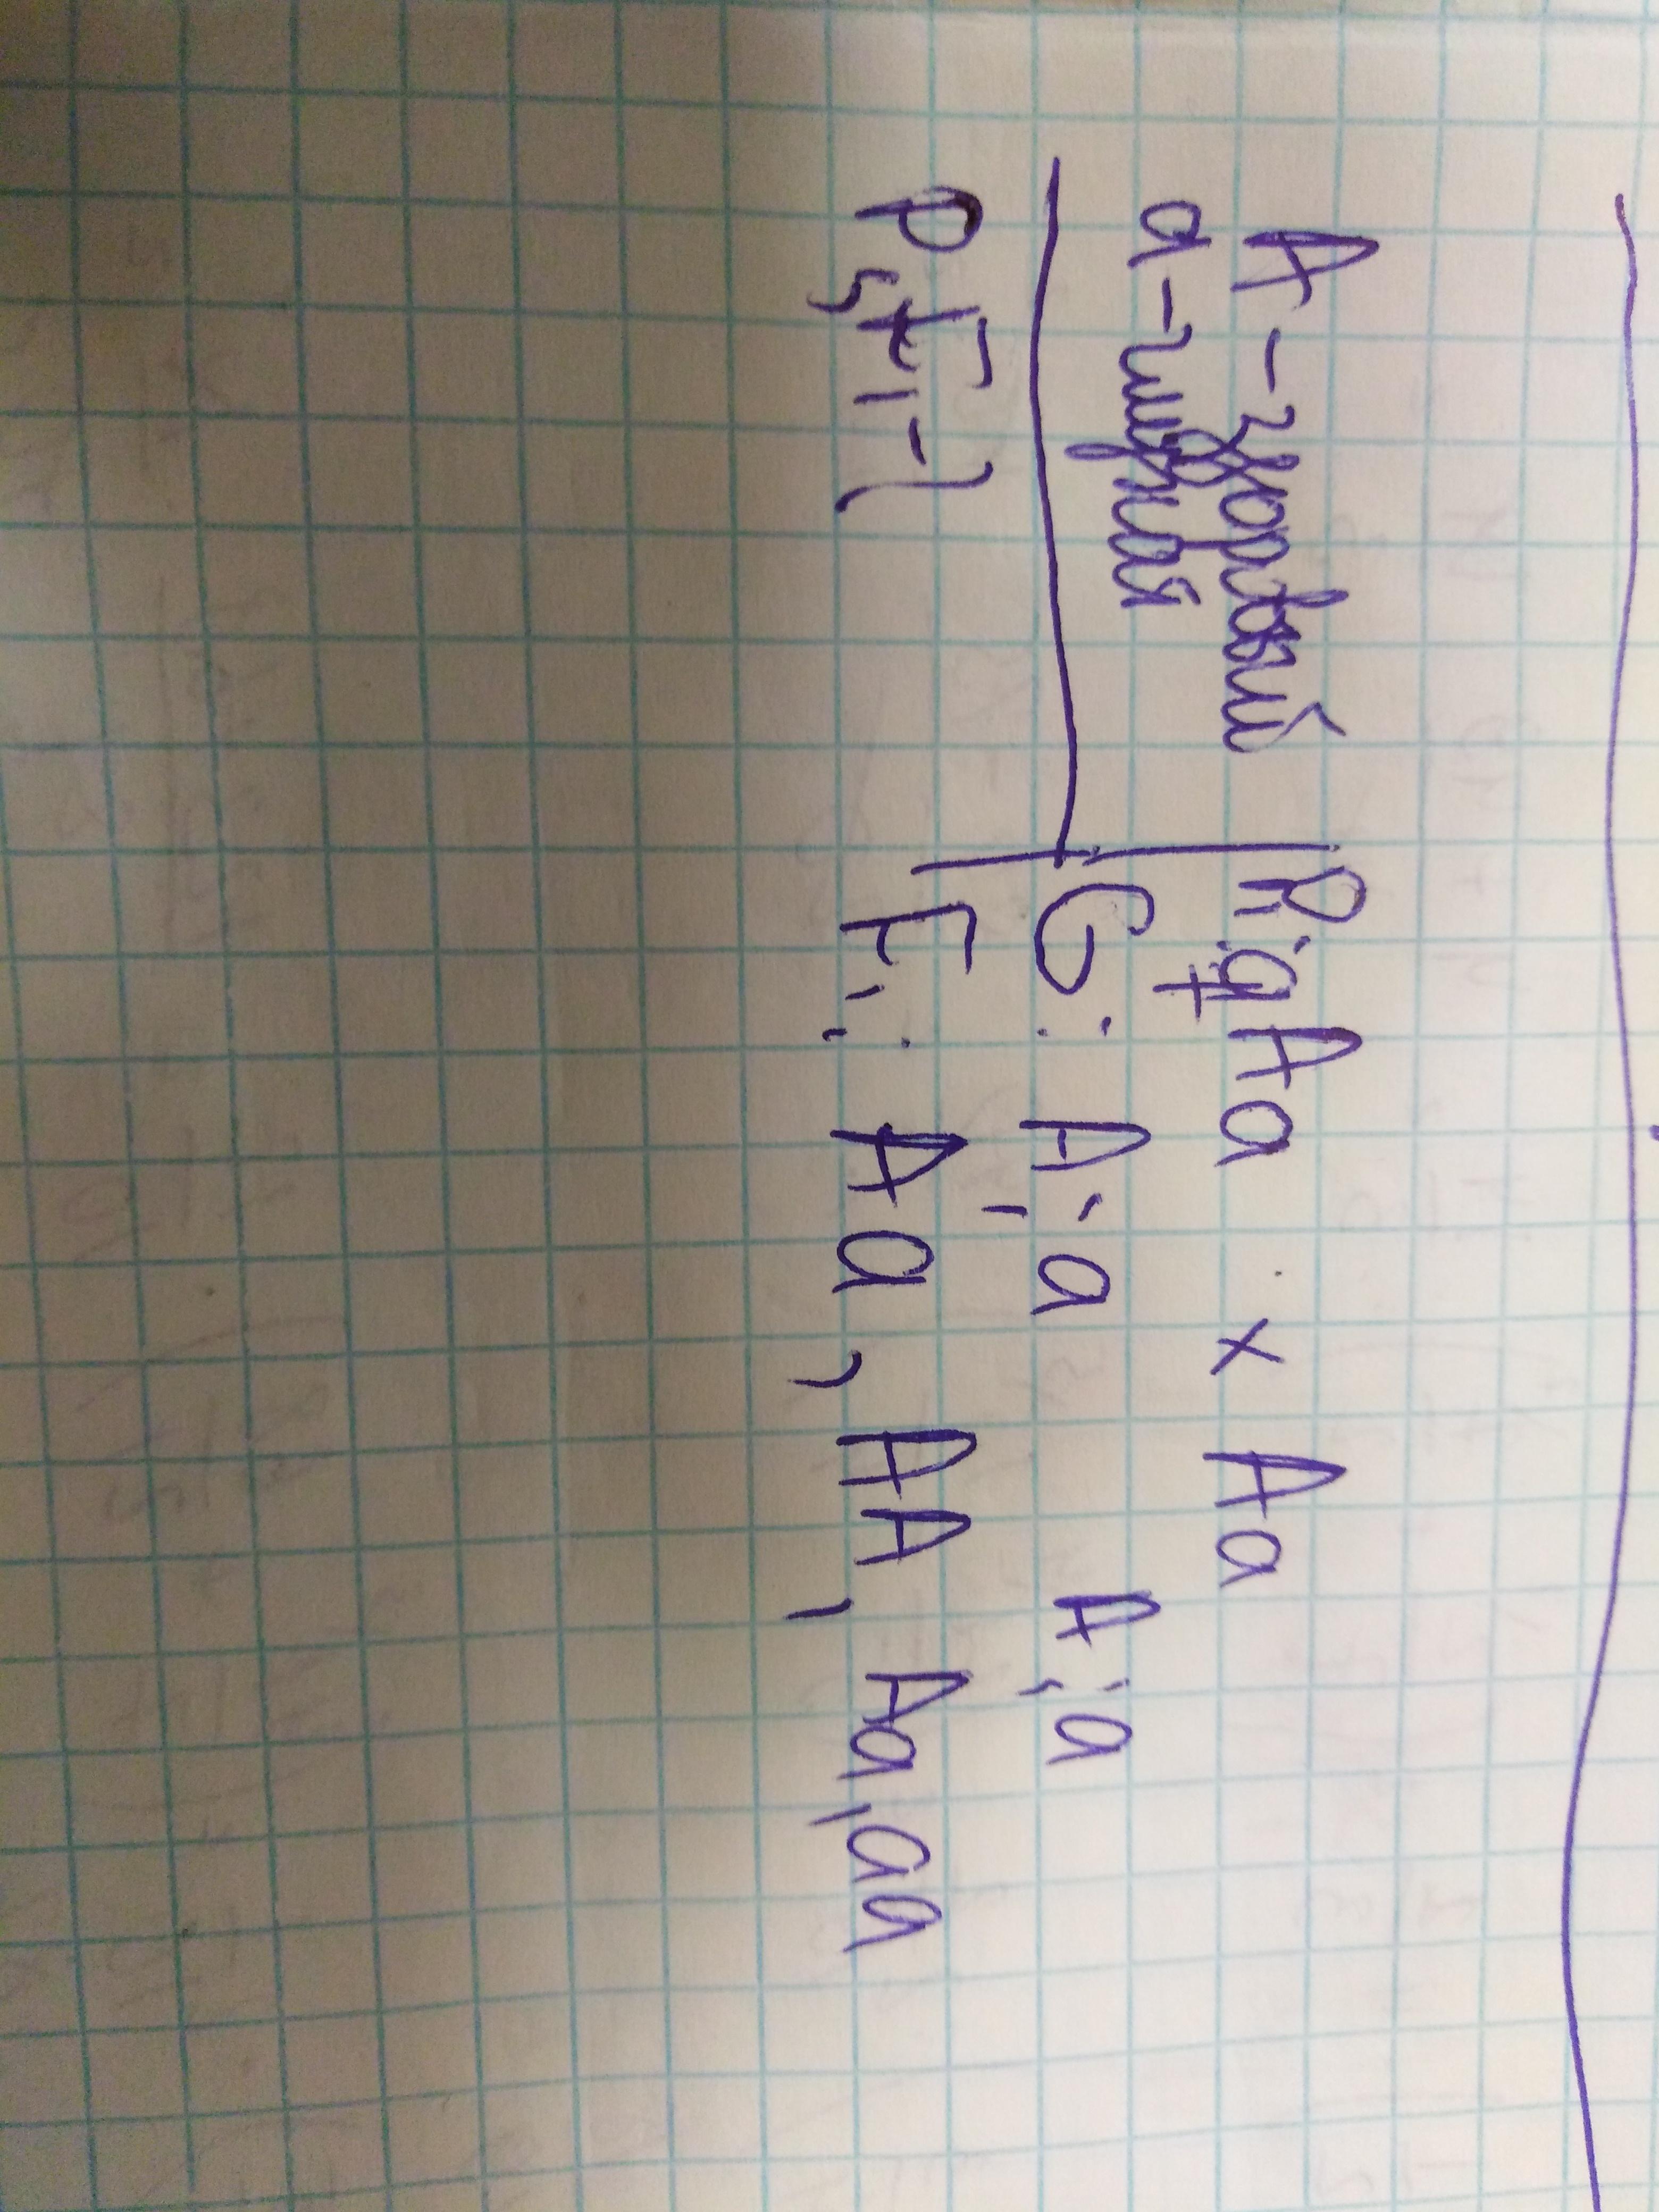 A - здоровый
а - глухая
P, F₁ - ?
P₁: ♀ Aa x Aa
G: A; a A; a
F₁: Aa, AA, Aa, aa